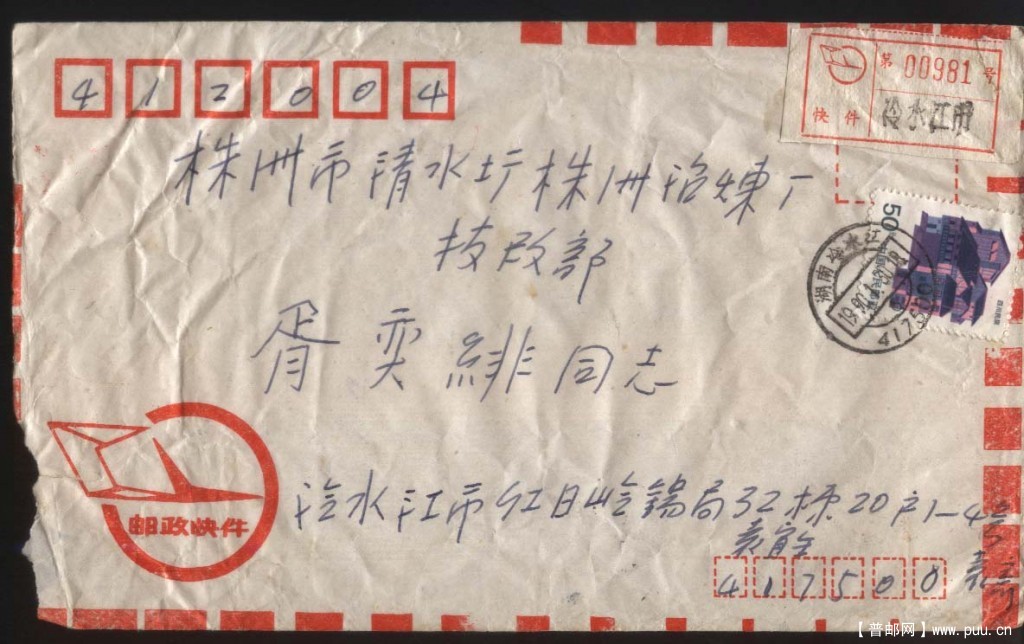 412004
第 00981 号
快件 冷水江市
株洲市清水圹株洲冶炼厂
技改部
胥奕緋同志
50
湖南冷水江
417500
邮政快件
冷水江市红日岭锡局32栋20户1-4号
袁
417500
【普邮网】www.puu.cn